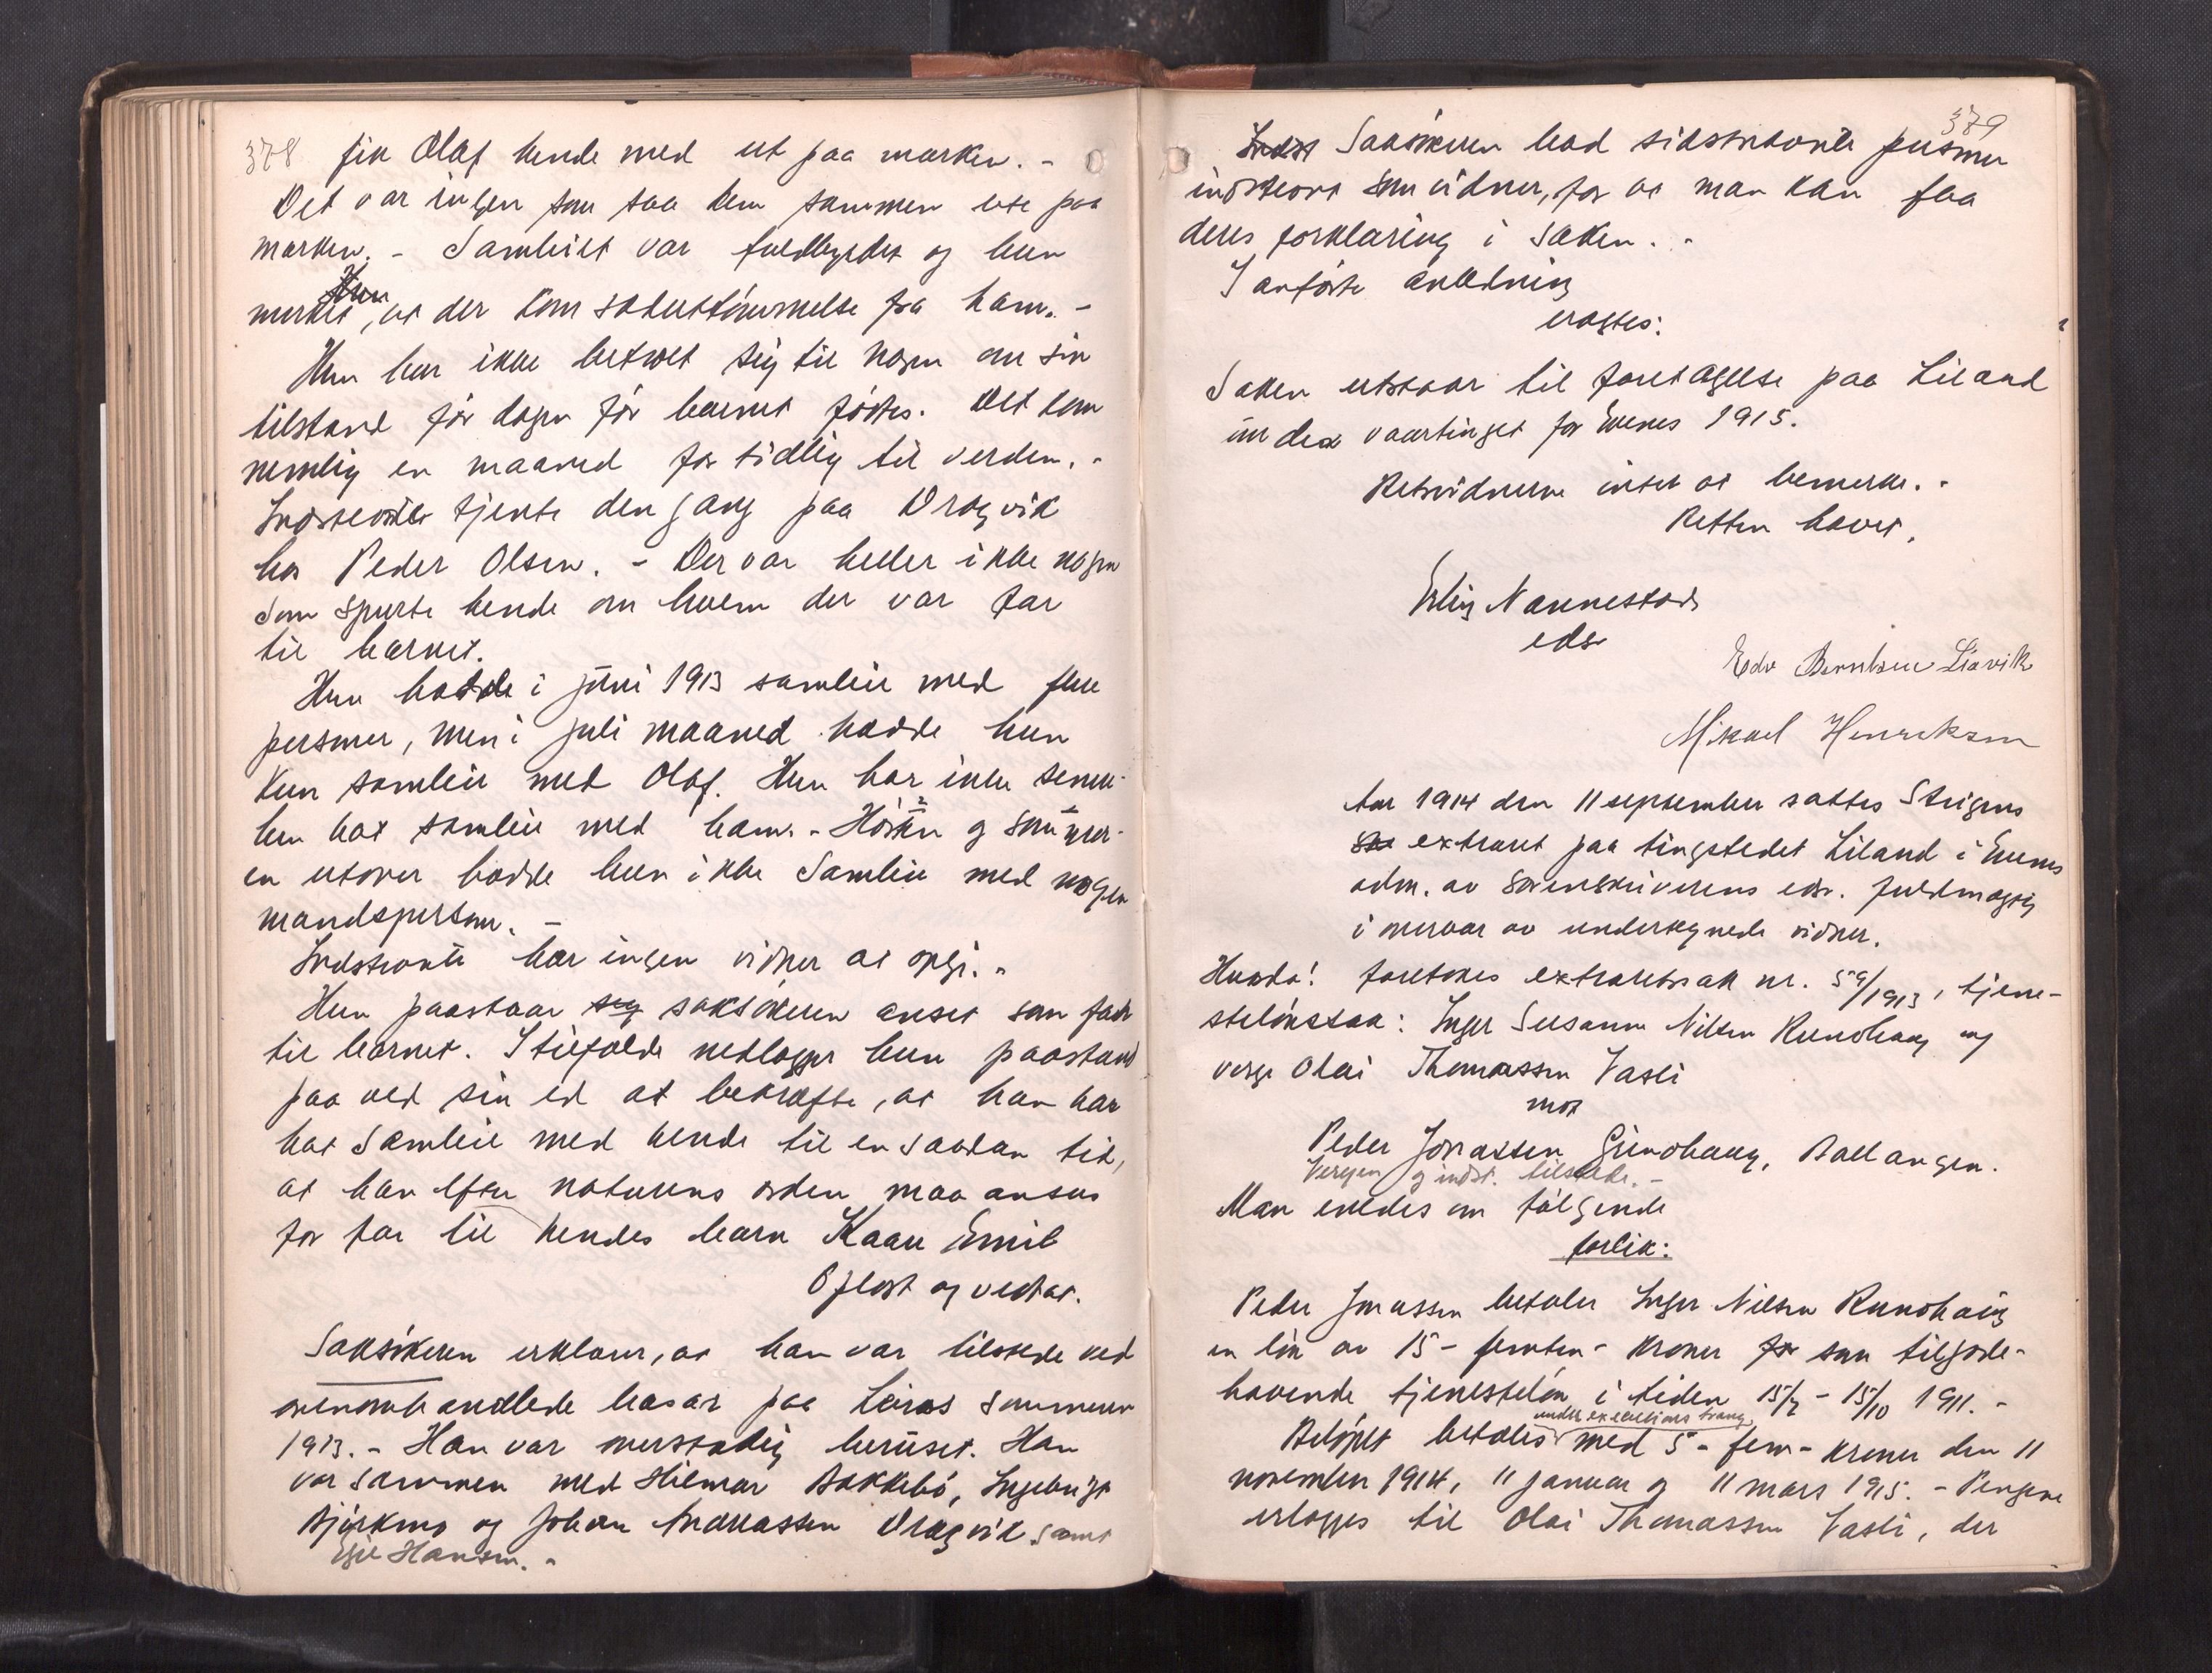 378
fik Olaf hende med ut paa marken. -
Det var ingen som saa dem sammen ute paa
marken. - Samleiet var fuldbyrdet og hun
merket, at der kom sæduttømmelse fra ham. -
Hun har ikke betrodt sig til nogen om sin
tilstand før dagen før barnet fødtes. Det kom
nemlig en maaned for tidlig til verden. -
Indstevnte tjente den gang paa Dragvik
hos Peder Olsen. - Der var heller ikke nogen
som spurte hende om hvem der var far
til barnet.
Hun hadde i juni 1913 samleie med flere
personer, men i juli maaned hadde hun
kun samleie med Olaf. Hun har ikke senere
hun hat samleie med ham. - Høsten og sommer-
en utover hadde hun ikke samleie med nogen
mandsperson. -
Indstevnte har ingen vidner at opgi. -
Hun paastaar sig saksøkeren anset som far
til barnet. I tilfælde nedlægger hun paastand
paa ved sin ed at bekræfte, at han har
hat samleie med hende til en saadan tid,
at han efter naturens orden maa anses
for far til hendes barn Kaare Emil
Oplæst og vedtat.
Saksøkeren erklærer, at han var tilstede ved
ovenomhandlede basar paa Leiros sommeren
1913. - Han var overstadig beruset. Han
var sammen med Hilmar Bakkebø, Ingebrigt
Bjørkmo og Johan Andreassen Dragvik samt
Egil Hansen. -
379
Indst Saksøkeren bad sidstnævnte personer
indstevnt som vidner, for at man kan faa
deres forklaring i saken. -
I anførte anledning
eragtes:
Saken utstaar til foretagelse paa Liland
under vaartinget for Evenes 1915.
Retsvidnerne intet at bemerke. -
Retten hævet.
Erling Nannestad
eds.
Edv Berntsen Liavik
Mikael Henriksen
Aar 1914 den 11 september sattes Steigens
extraret paa tingstedet Liland i Evenes
adm. av sorenskriverens eds. fuldmægtig
i overvær av undertegnede vidner.
Hvorda! foretokes extraretssak nr. 59/1913, tjene-
stelønssak: Inger Susanne Nilsen Rundhaug og
verge Olai Thomassen Vasli
mot
Peder Jonassen Grindhaug, Ballangen.
Vergen og indst. tilstede. -
Man enedes om følgende
forlik:
Peder Jonassen betaler Inger Nilsen Rundhaug
en løn av 15 - femten - kroner for sin tilgode-
havende tjenesteløn i tiden 15/7 - 15/10 1911. -
under executions tvang
Beløpet betales med 5 - fem - kroner den 11
november 1914, 11 januar og 11 mars 1915. - Pengene
erlægges til Olai Thomassen Vasli, der